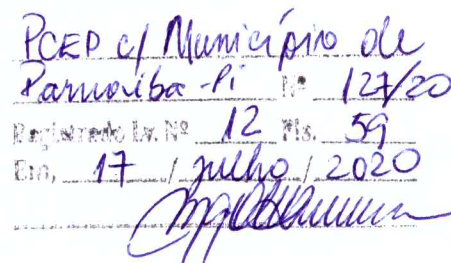 PCEP c/ Município de
Parnaíba-Pi Nº 127/20
Registrado Lv. Nº 12 Fls. 59
Em, 17 / julho / 2020